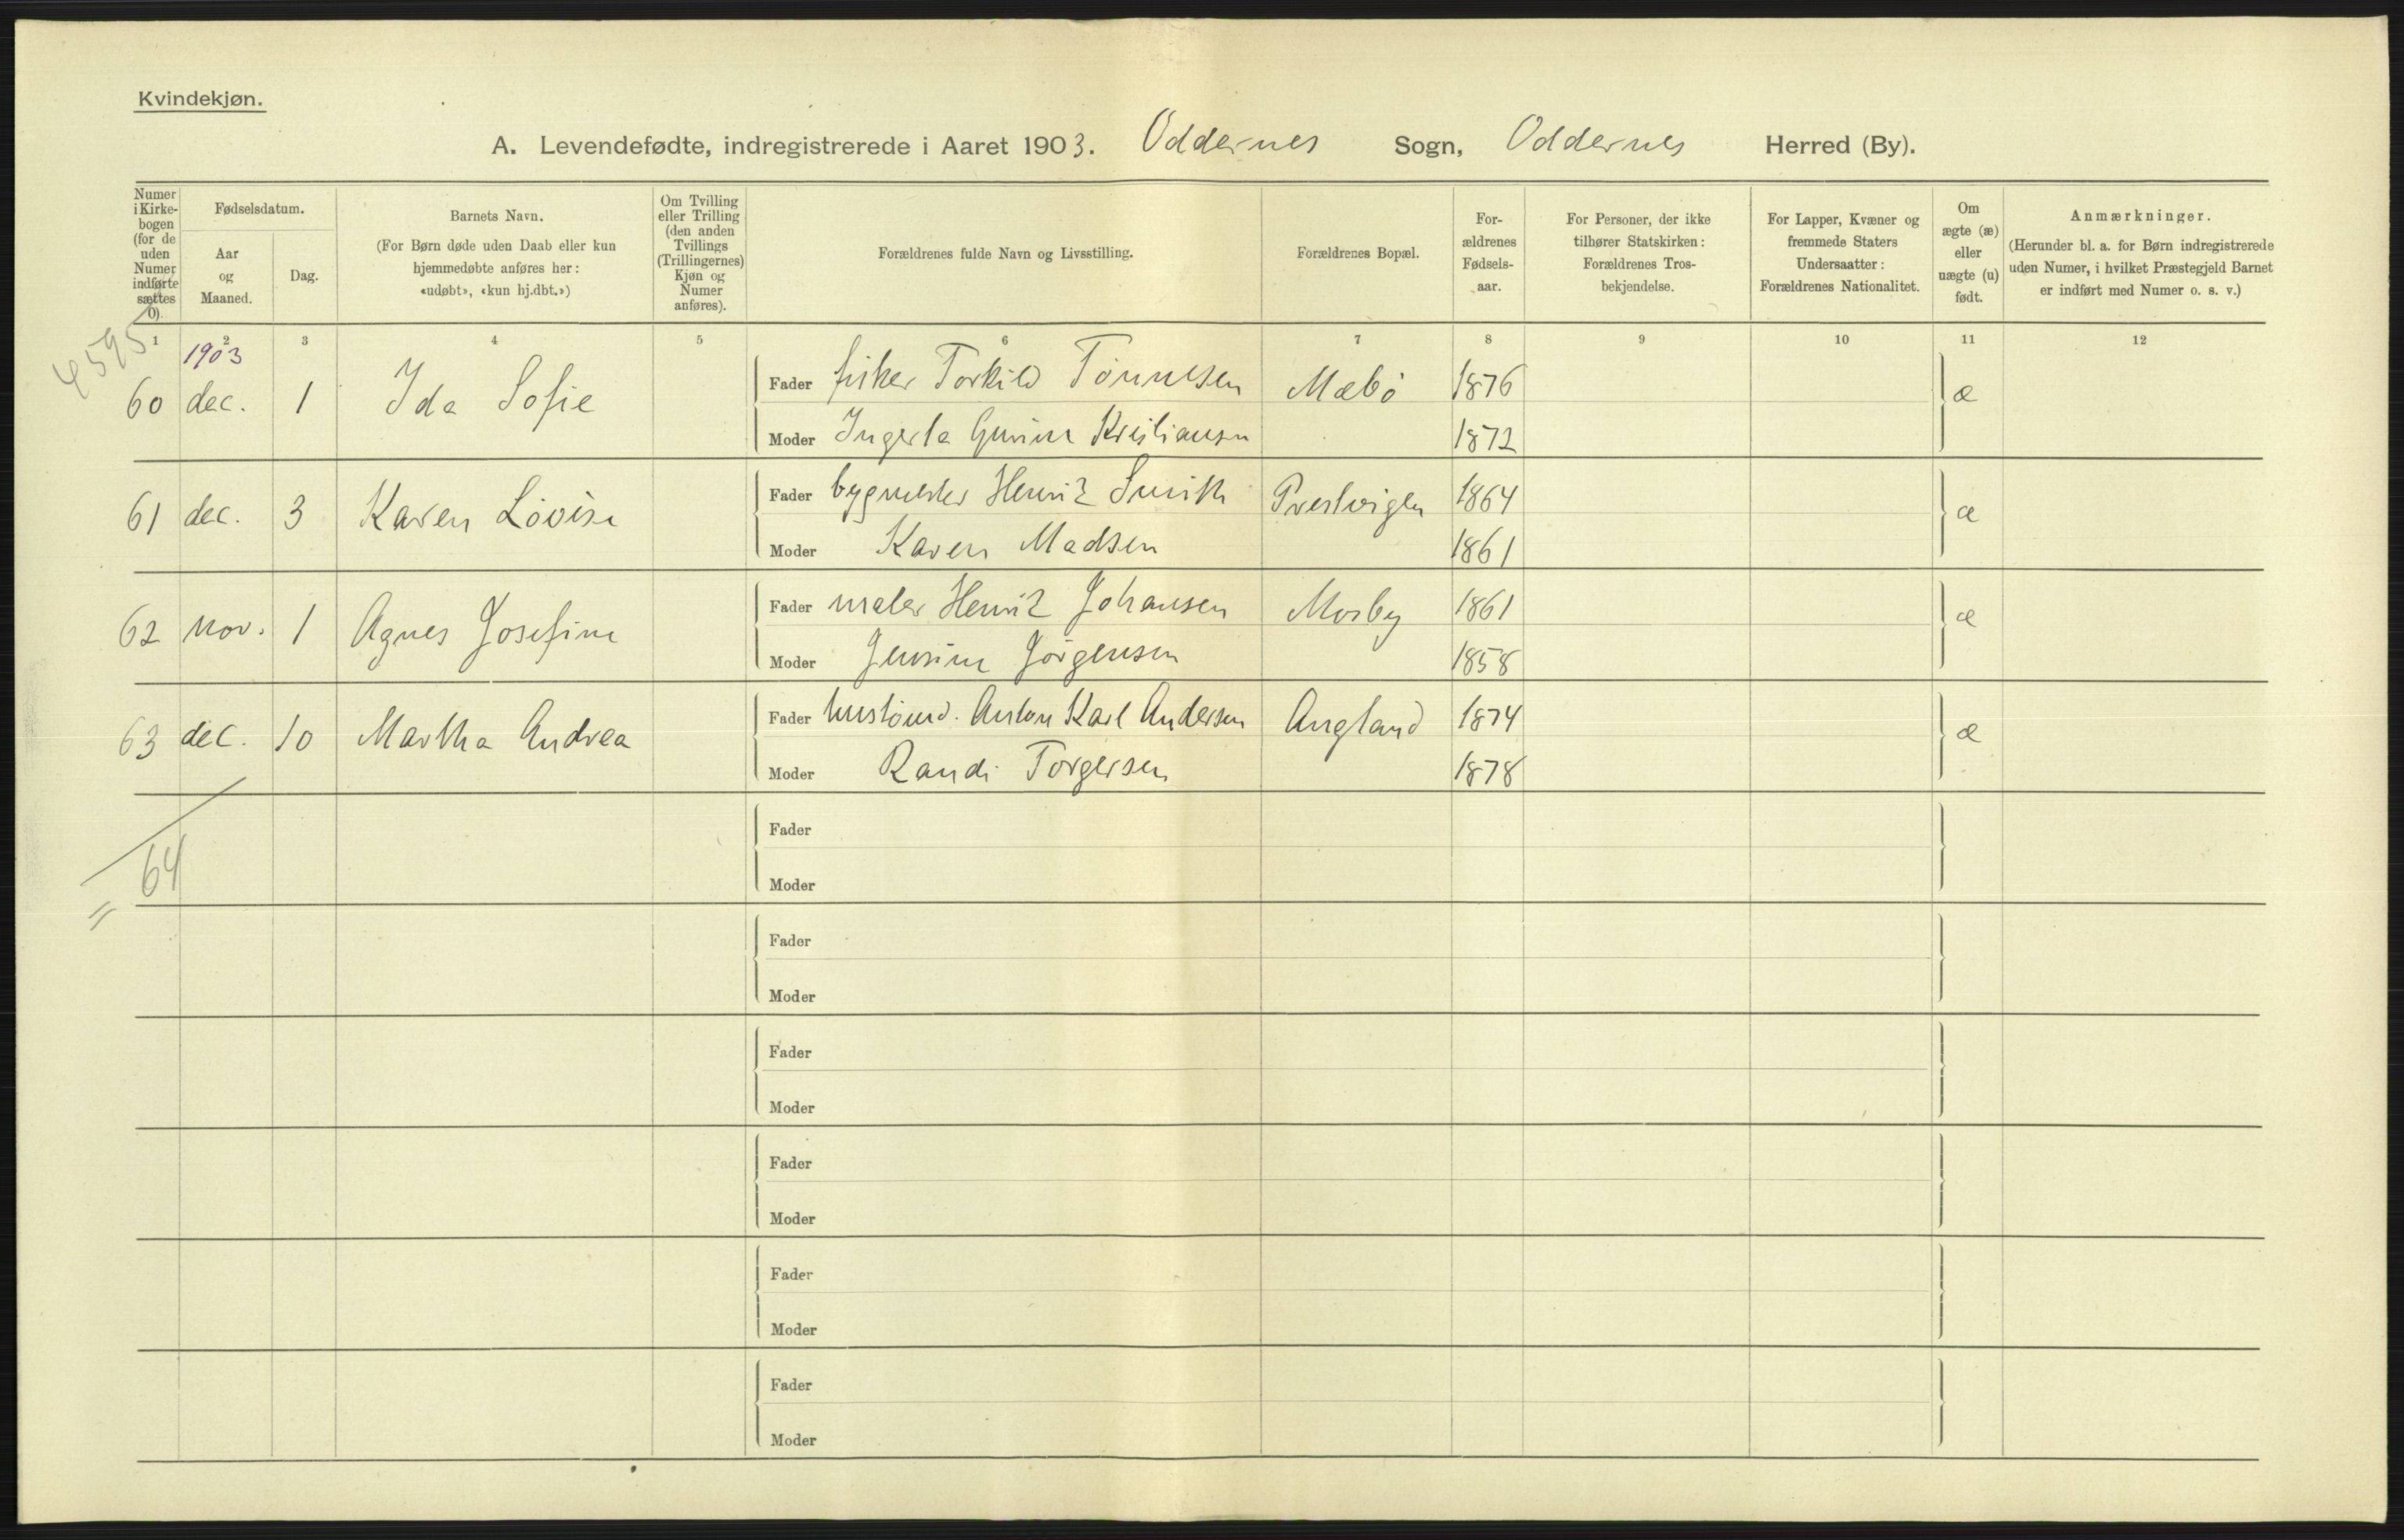 Kvindekjøn.
A. Levendefødte, indregistrerede i Aaret 1903. Oddernes Sogn, Oddernes Herred (By).
Numer i Kirke-bogen (for de uden Numer indførte sættes 0).
Fødselsdatum.
Aar og Maaned.
Dag.
Barnets Navn.
(For Børn døde uden Daab eller kun hjemmedøbte anføres her: «udøbt», «kun hj.dbt.»)
Om Tvilling eller Trilling (den anden Tvillings (Trillingernes) Kjøn og Numer anføres).
Forældrenes fulde Navn og Livsstilling.
Forældrenes Bopæl.
For-ældrenes Fødsels-aar.
For Personer, der ikke tilhører Statskirken: Forældrenes Tros-bekjendelse.
For Lapper, Kvæner og fremmede Staters Undersaatter: Forældrenes Nationalitet.
Om ægte (æ) eller uægte (u) født.
Anmærkninger.
(Herunder bl. a. for Børn indregistrerede uden Numer, i hvilket Præstegjeld Barnet er indført med Numer o. s. v.)
1 2 3 4 5 6 7 8 9 10 11 12
4595
1903
60 dec. 1 Ida Sofie Fader fisker Torkild Tönnesen Mæbö 1876 æ
Moder Ingerta Gurine Kristiansen 1872
61 dec. 3 Karen Lövise Fader bygmester Henrik Smith Prestvigen 1864 æ
Moder Karen Madsen 1861
62 nov. 1 Agnes Josefine Fader maler Henrik Johansen Mosby 1861 æ
Moder Jensine Jörgensen 1858
63 dec. 10 Martha Andrea Fader Anton Karl Andersen Augland 1874 æ
Moder Randi Torgersen 1878
64
Fader
Moder
Fader
Moder
Fader
Moder
Fader
Moder
Fader
Moder
Fader
Moder